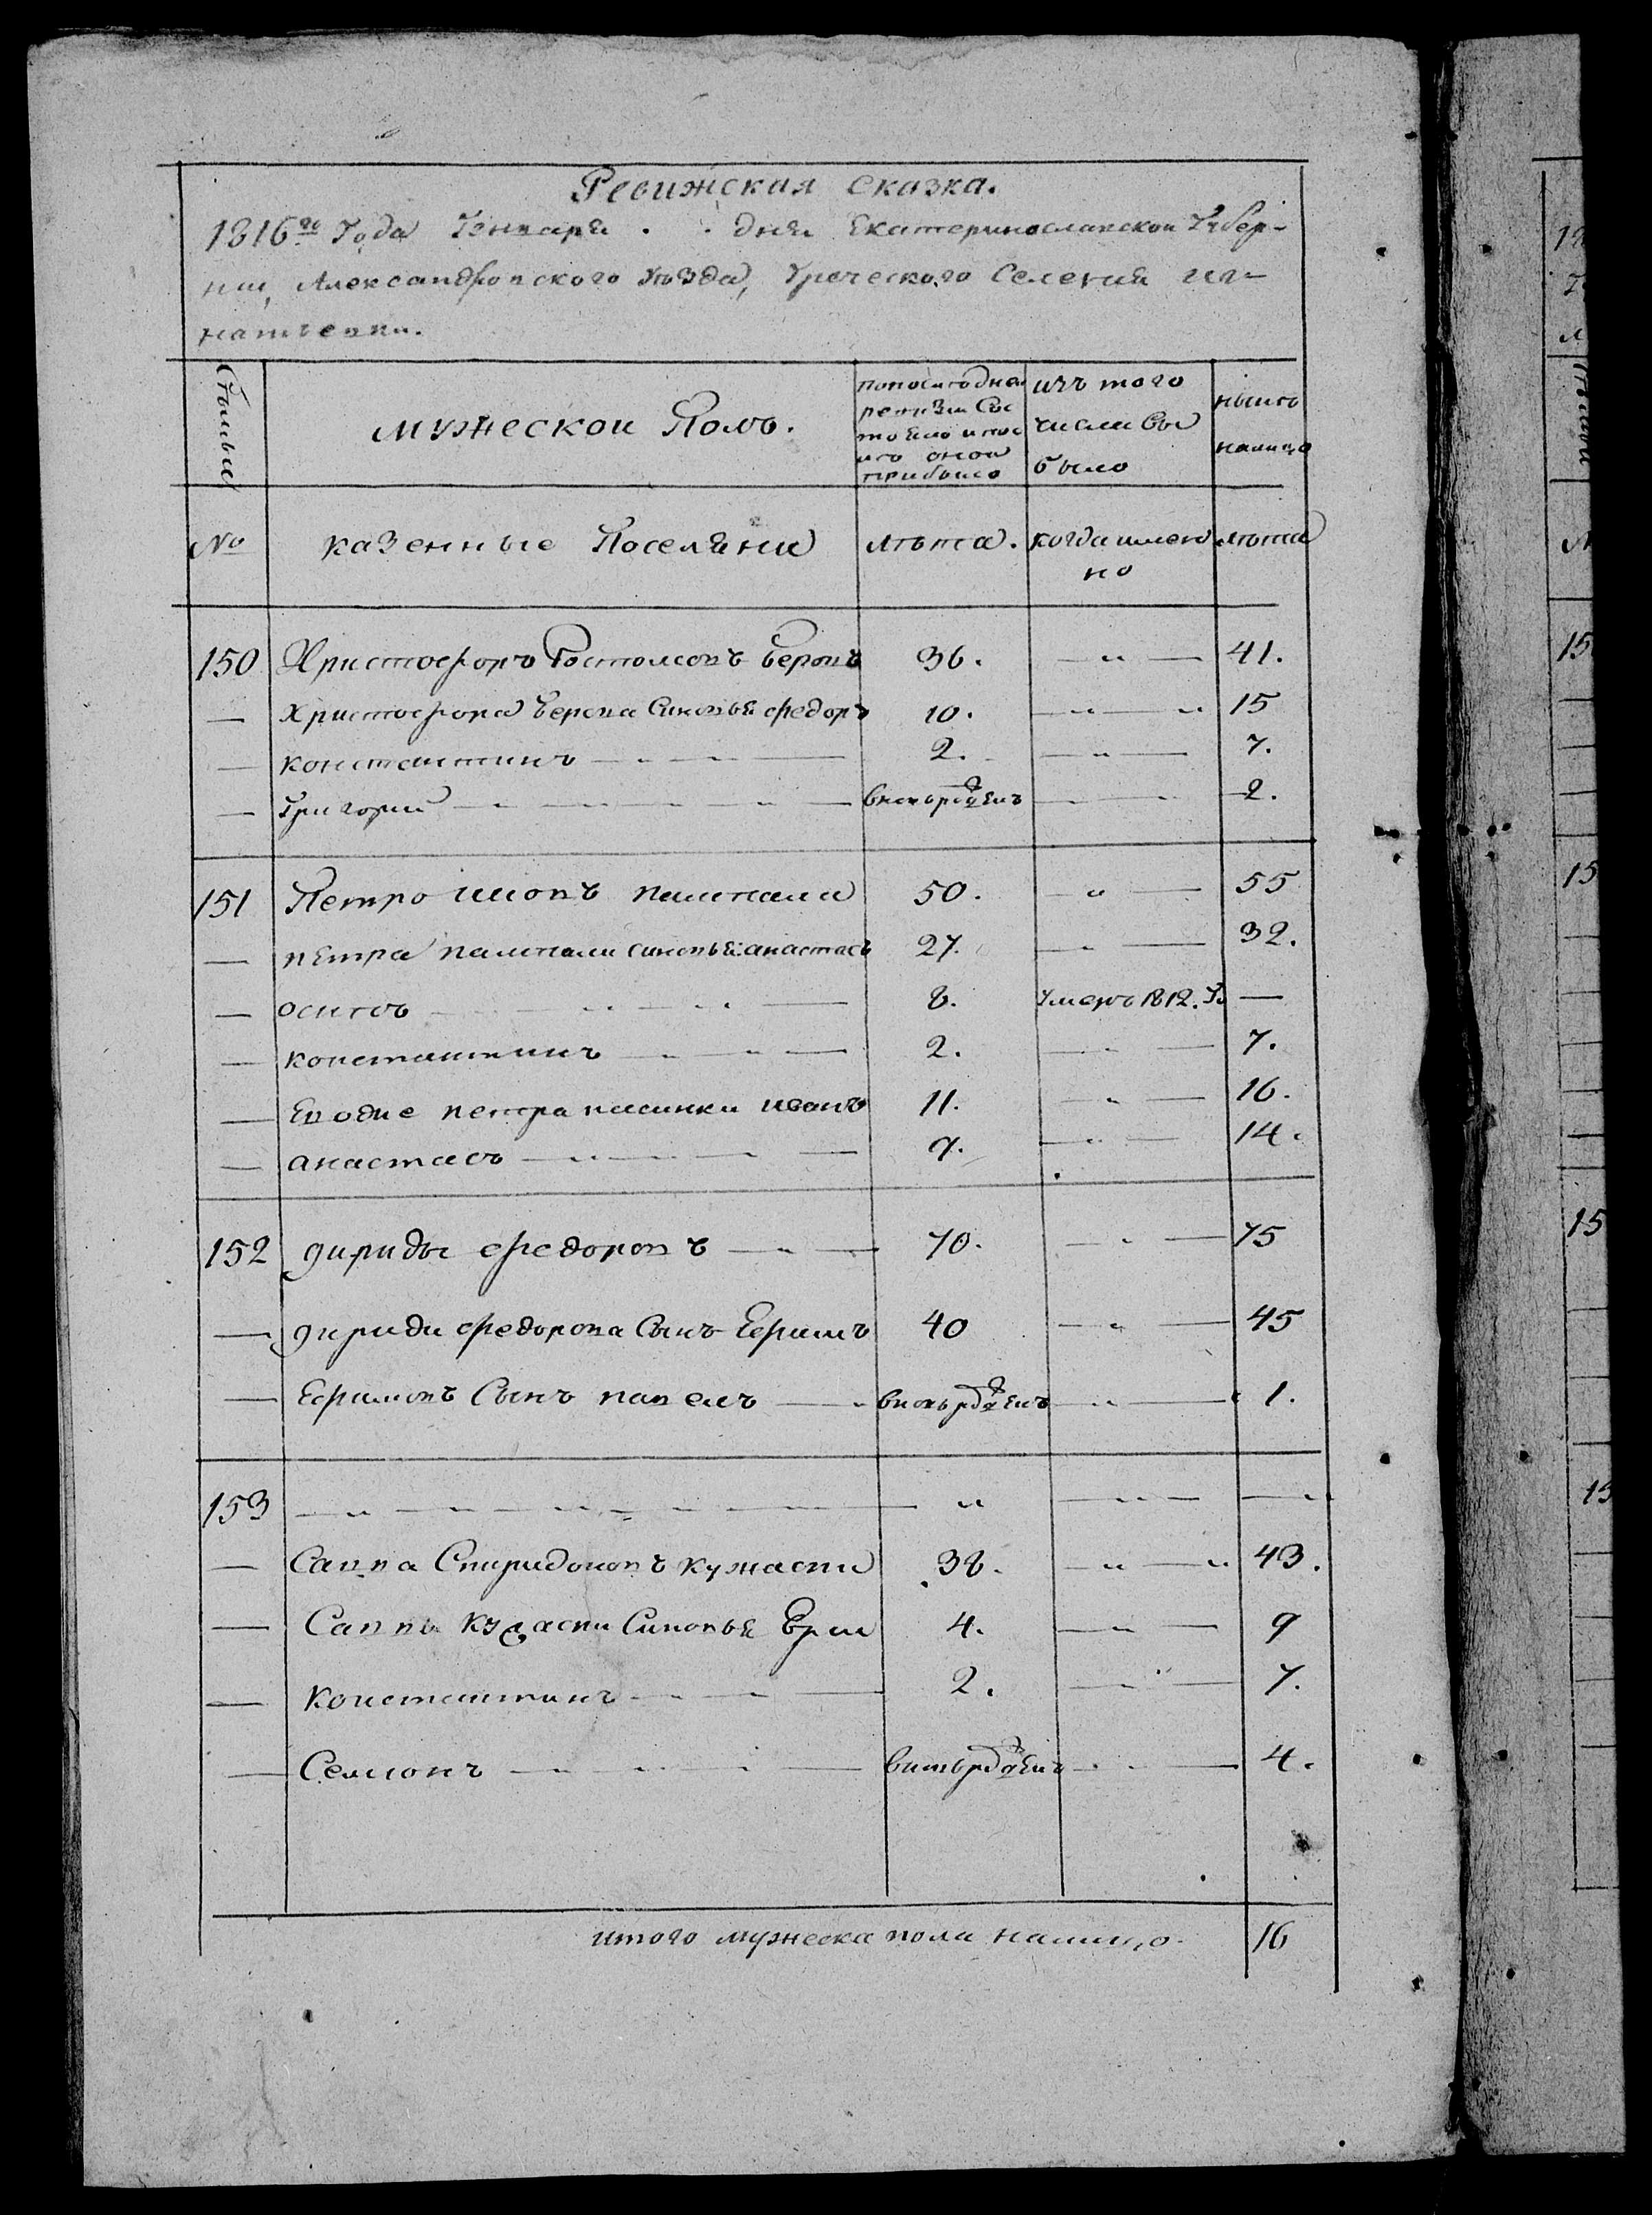 Ревижская сказка.
1816го Года Генваря . . дня Екатеринославской Губер-
нии, Александровского уѣзда, Греческого Селения иг-
натьевки.
Семьи
мужеской Полъ.
попослѣдней ревизии Сос тояло и пос лѣ оной прибыло
изъ того числа вы было
нынѣ налицо
№ казенные Поселяни лѣта. когда имен но лѣта
150 Христофоръ Беровъ 36. — „ — 41.
— Христофора Берова Синовья Федоръ 10. — „ — „ 15
— константинъ — „ — „ — 2. — „ — 7.
— Григорий — „ — „ — „ — вновьрожденъ — „ — 2.
151 Петро 50. — „ — 55
— петра синовья: анастасъ 27. — „ — 32.
— осипъ — „ — „ — 8. Умеръ 1812. Го —
— константинъ — „ — „ — 2. — „ — 7.
— петра иванъ 11. — „ — 16.
— анастасъ — „ — „ — 9. — „ — 14.
152 федоровъ — „ — 70. — „ — 75
— федорова Сынъ Ефимъ 40 — „ — 45
— Ефимовъ Сынъ павелъ — „ вновьрожденъ — „ — 1.
153 — „ — „ — „ — „ — „ — „ — — „ —
— Савва Спиридоновъ кужаспи 38. — „ — „ 43.
— Саввы Синовья 4. — „ — 9
— Константинъ — „ — „ — 2. — „ — 7.
— Семионъ — „ — „ — „ — вновьрожденъ — „ — 4.
итого мужеска пола налицо. 16
15
15
15
15